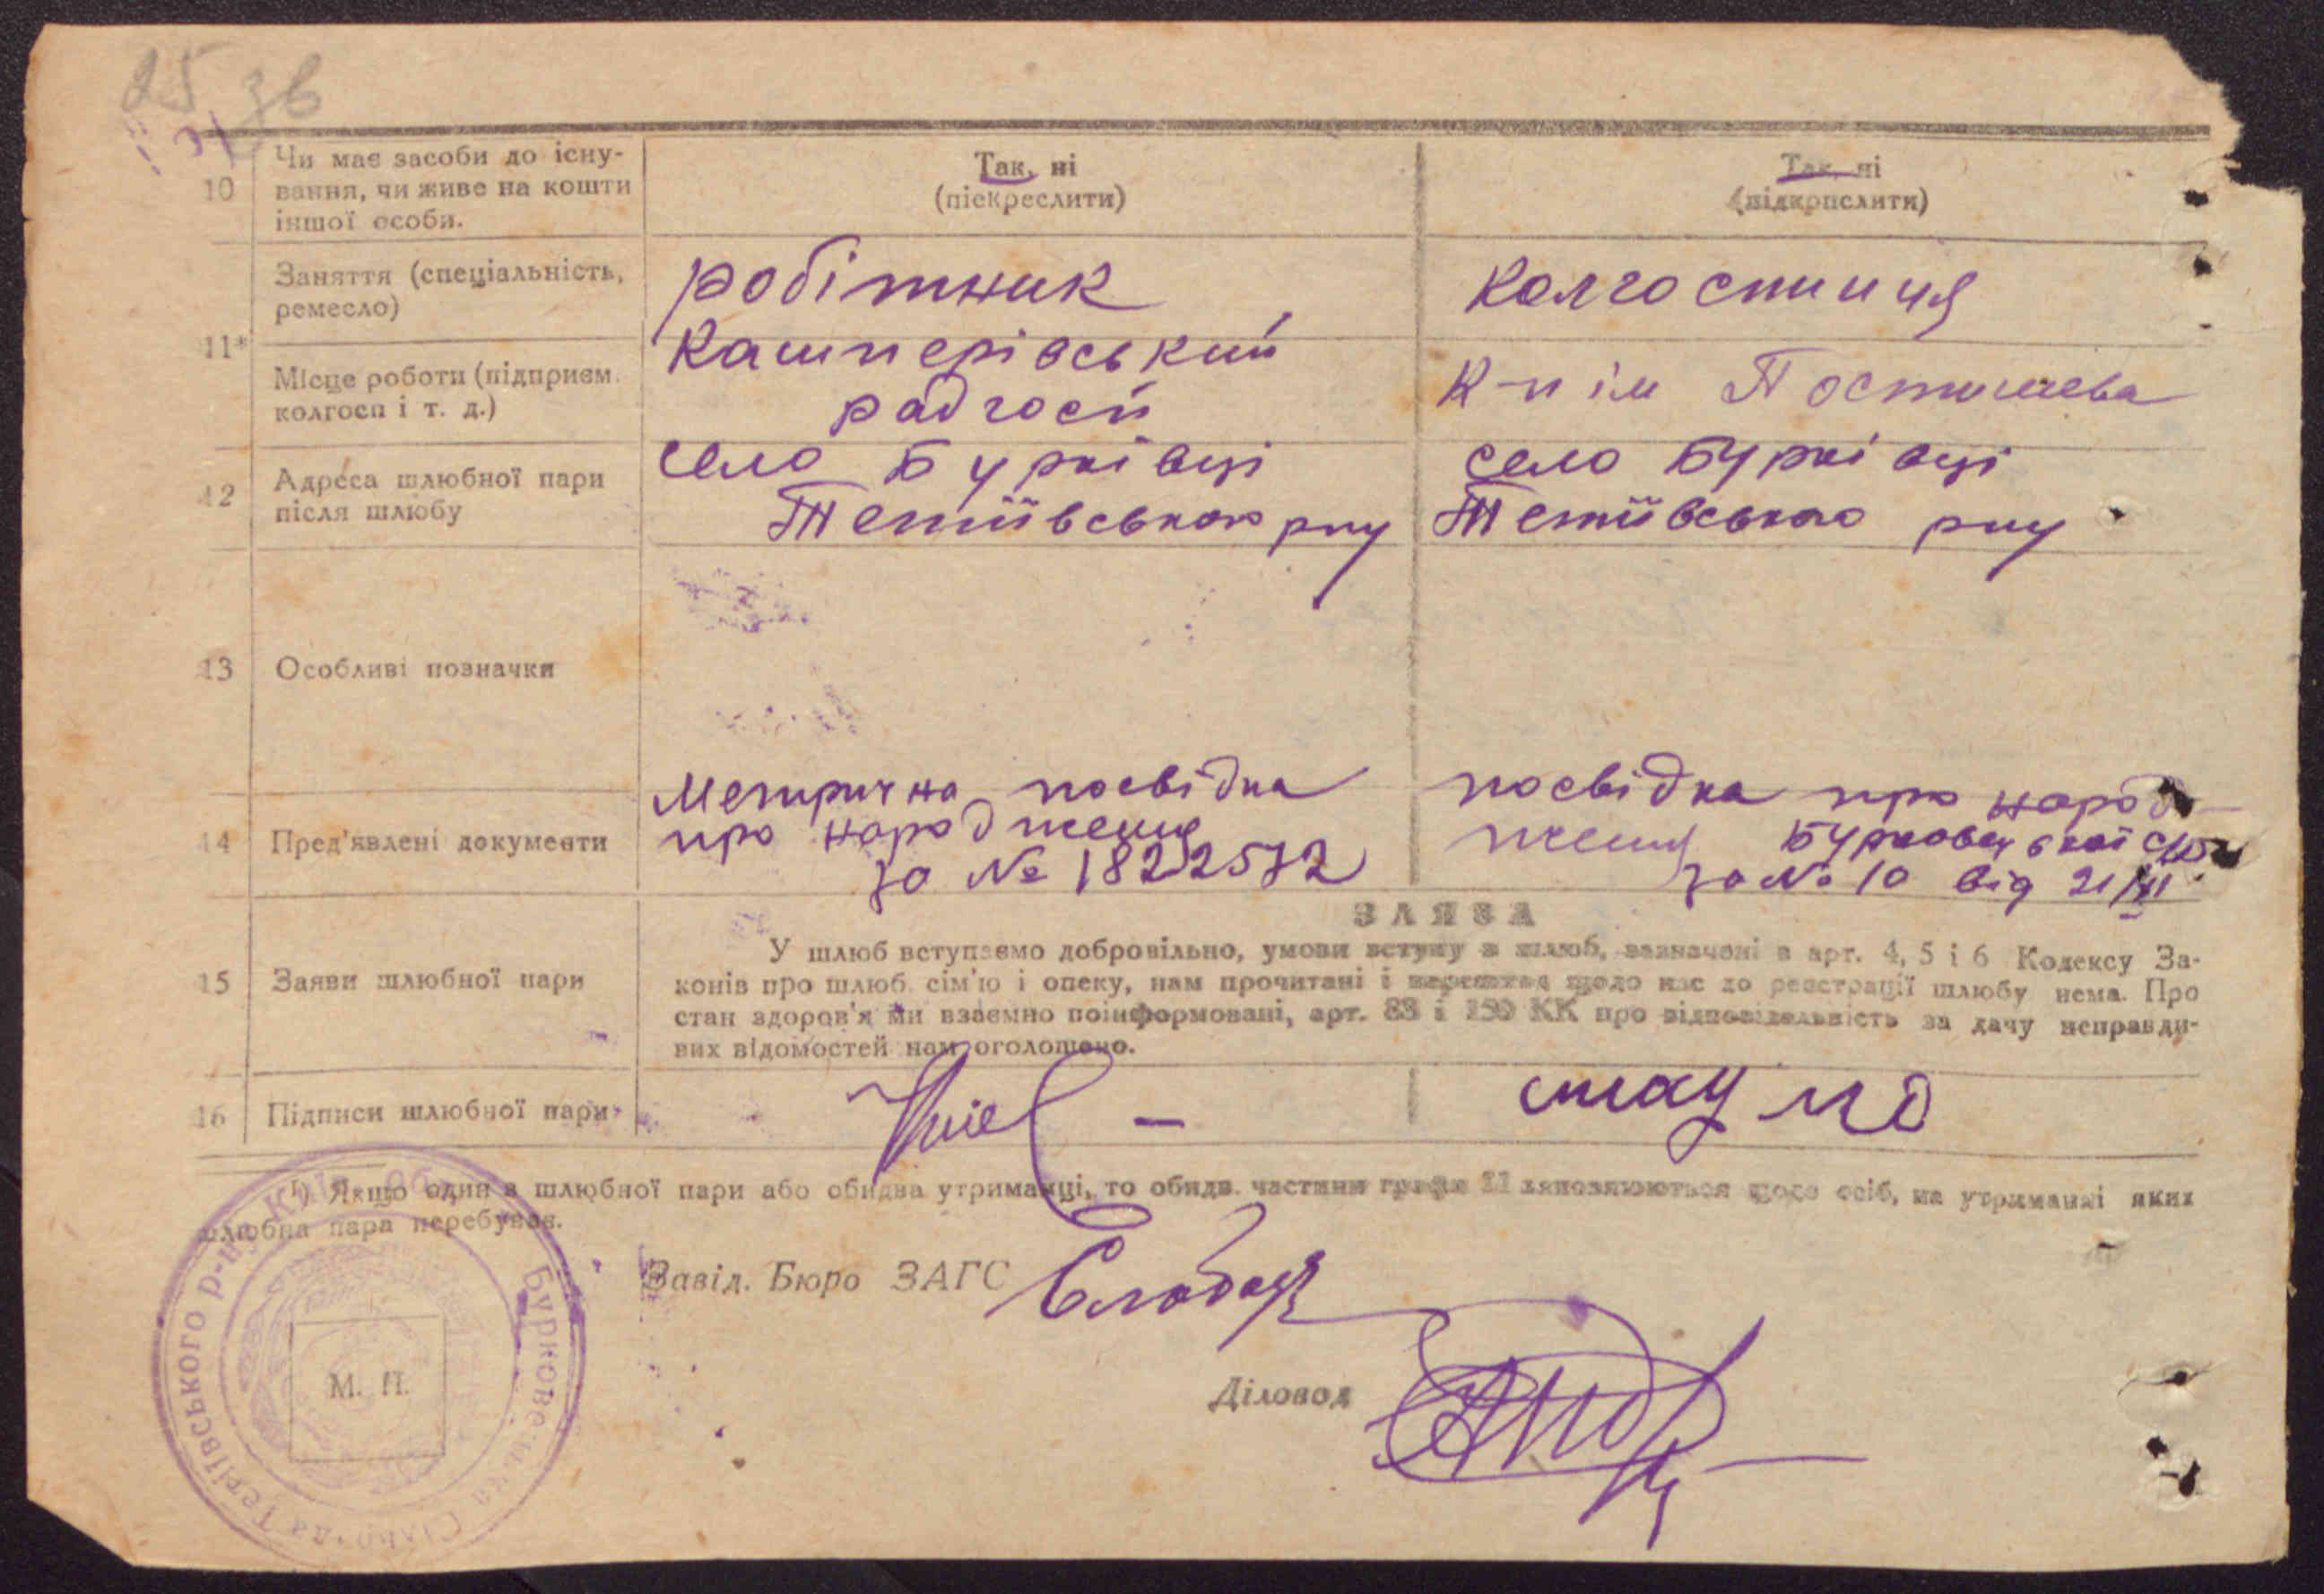 25 зв
10 Чи має засоби до існу-
вання, чи живе на кошти
іншої особи.
Так, ні
(піскреслити)
Так, ні
(підкрпслити)
11*
Заняття (спеціальність,
ремесло)
робітник
колгоспниця
Місце роботи (підприєм.
колгосп і т. д.)
Кашперівський
радгосп
К-п ім Постишева
12 Адреса шлюбної пари
після шлюбу
село Бурківці
Тетіївського рну
село Бурківці
Тетіївського рну
13 Особливі позначки
14 Пред'явлені документи
Метрична посвідка
про народження
за № 1822572
посвідка про народ-
ження Бурковецької
за № 10 від 21/
15 Заяви шлюбної пари
ЗАЯВА
У шлюб вступаємо добровільно, умови вступу в шлюб, зазначені в арт. 4, 5 і 6 Кодексу За-
конів про шлюб, сім'ю і опеку, нам прочитані і перешкод щодо нас до реєстрації шлюбу нема. Про
стан здоров'я ми взаємно поінформовані, арт. 88 і 150 КК про відповідальність за дачу неправди-
вих відомостей нам оголошено.
16 Підписи шлюбної пари
¹) Якщо один з шлюбної пари або обидва утриманці, то обидв. частини графи 11 заповнюються щодо осіб, на утриманні яких
шлюбна пара перебуває.
Завід. Бюро ЗАГС
Діловод
М. П.
Тетіївського р-ну Київ. обл.
Бурковецька Сільрада